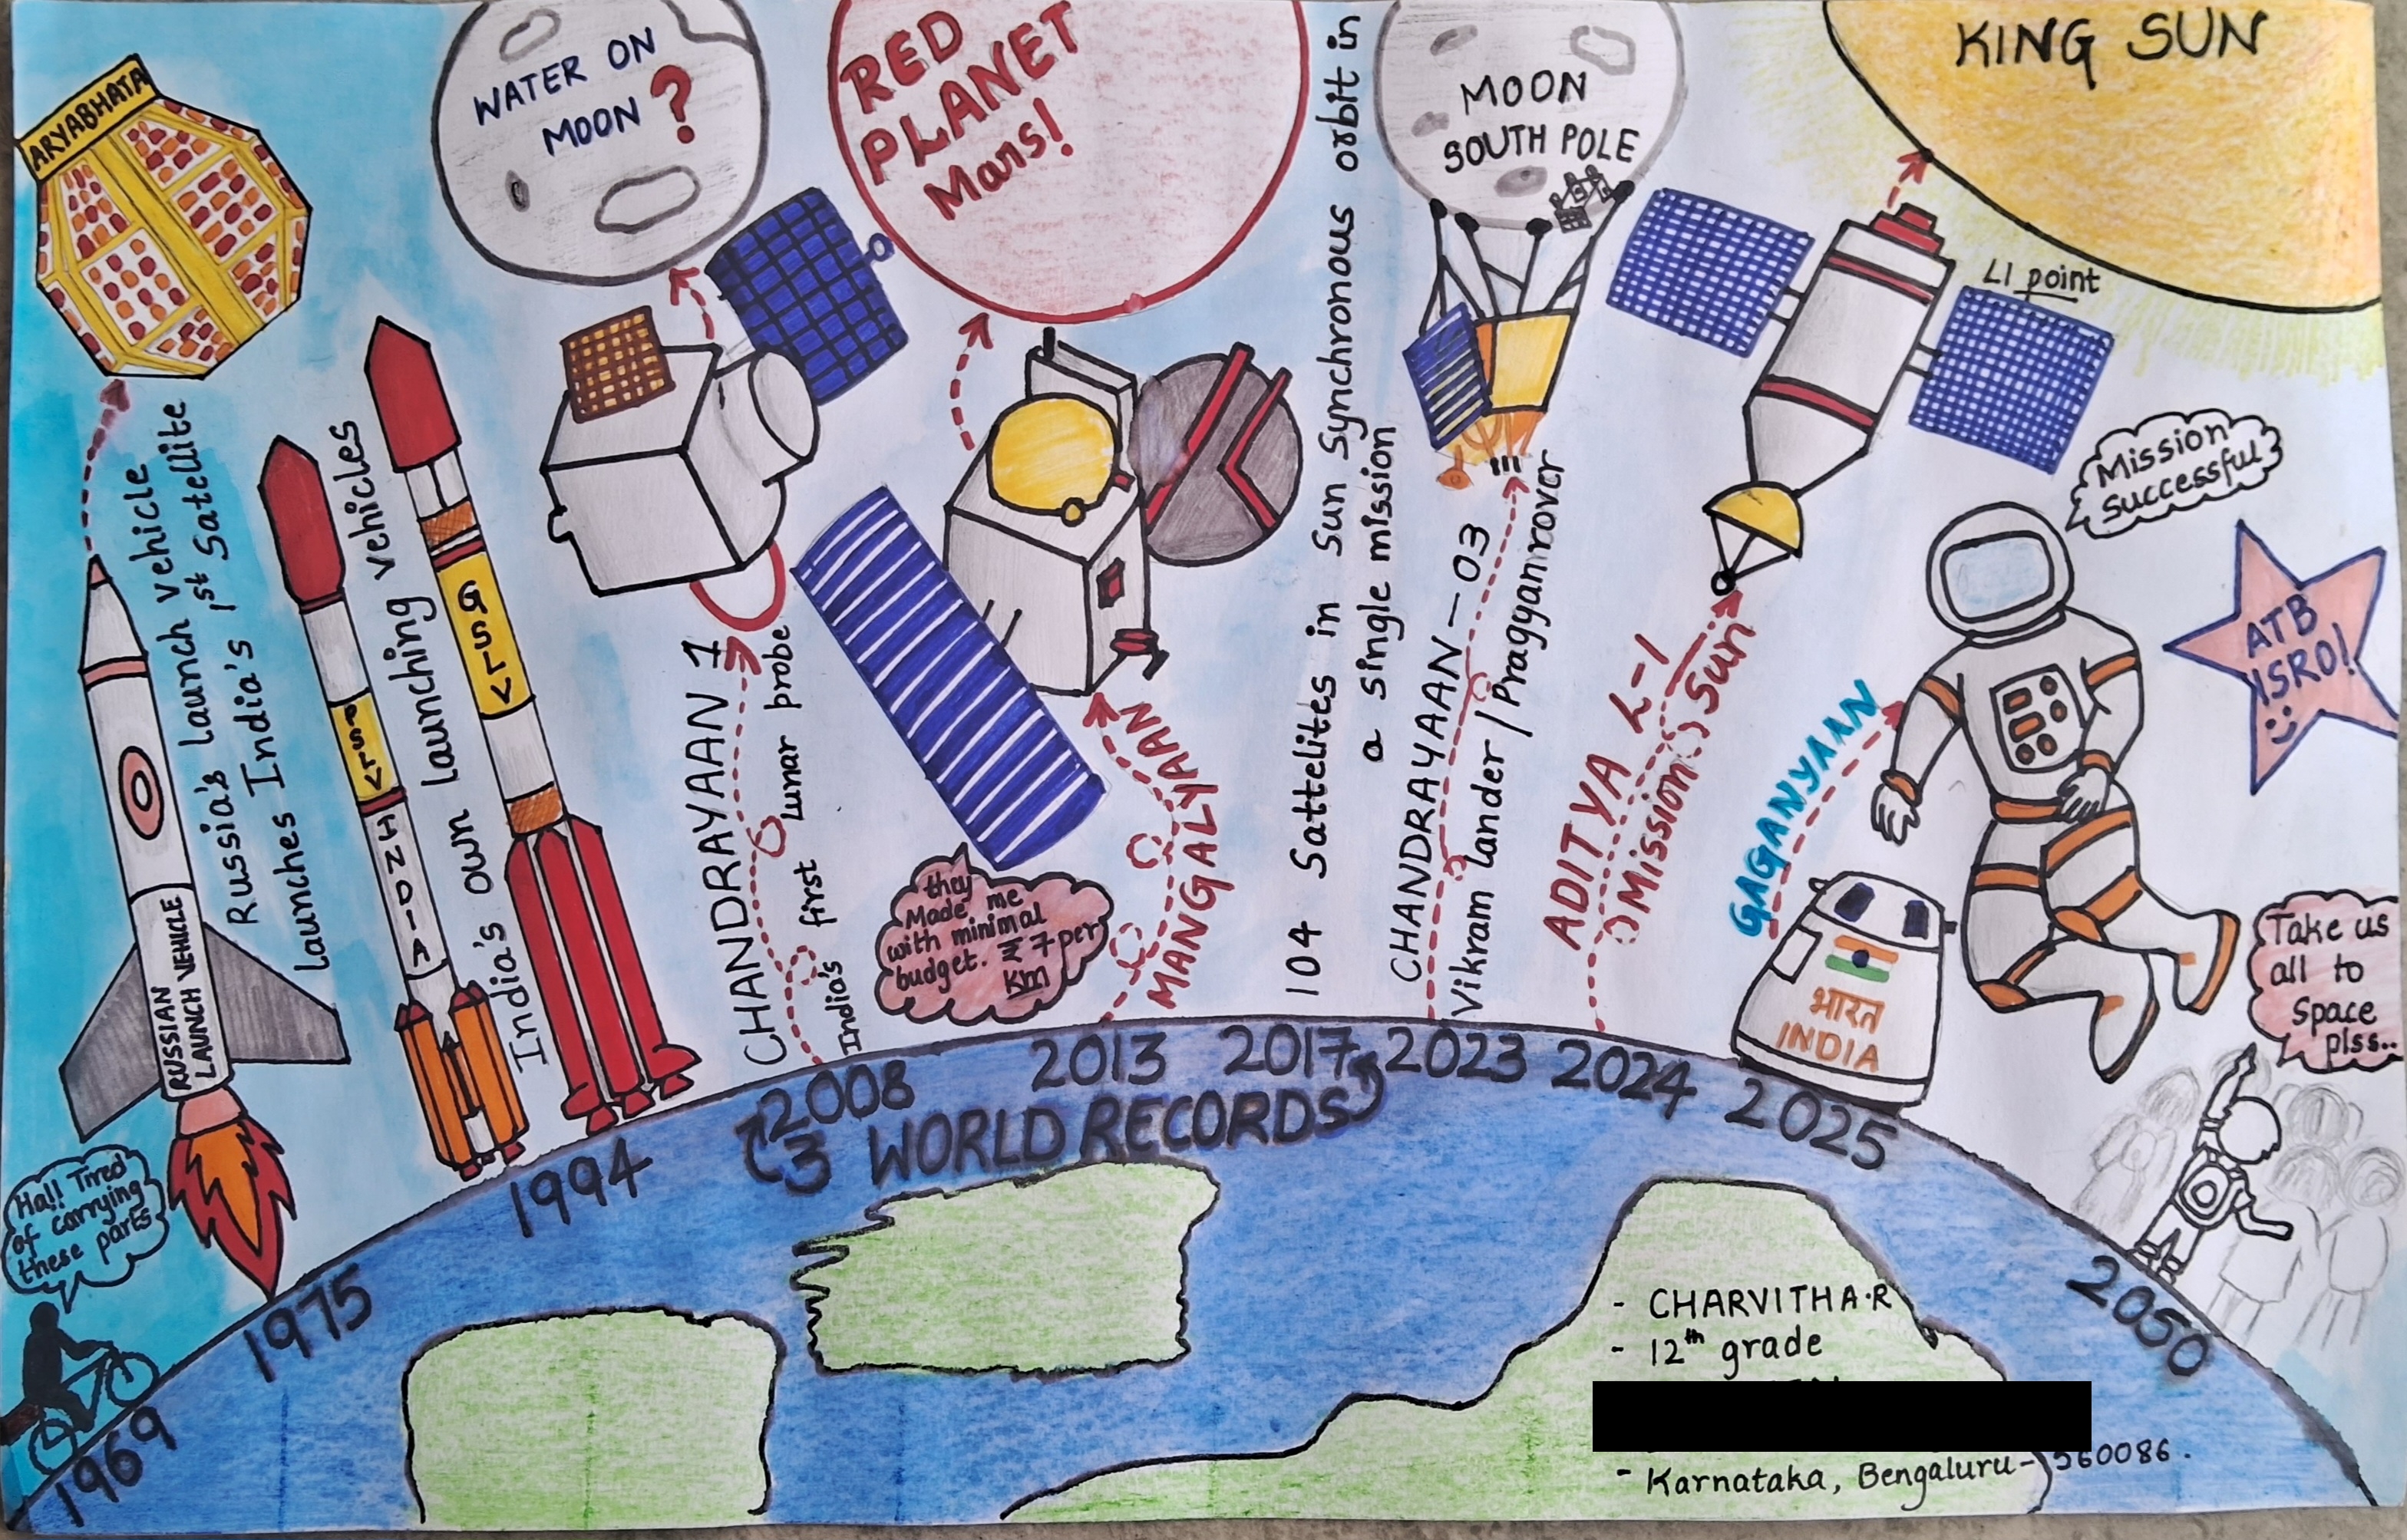 ARYABHATA
Russia's Launch vehicle
Launches India's 1st Satellite
RUSSIAN
LAUNCH VEHICLE
Ha!! Tired
of carrying
these parts
1969
1975
India's own launching vehicles
PSLV
INDIA
GSLV
1994
WATER ON
MOON ?
CHANDRAYAAN 1
India's first Lunar probe
2008
RED
PLANET
Mars!
they
Made me
with minimal
budget. ₹ 7 per
Km
MANGALYAAN
2013
104 Sattelites in Sun Synchronous orbit in
a single mission
2017
3 WORLD RECORDS
MOON
SOUTH POLE
CHANDRAYAAN - 03
Vikram lander / Pragyanrover
2023
KING SUN
L1 point
ADITYA L-1
Mission Sun
2024
Mission
successful
GAGANYAAN
भारत
INDIA
2025
ATB
ISRO!
Take us
all to
Space
plss..
2050
- CHARVITHA.R
- 12th grade
- Karnataka, Bengaluru - 560086.